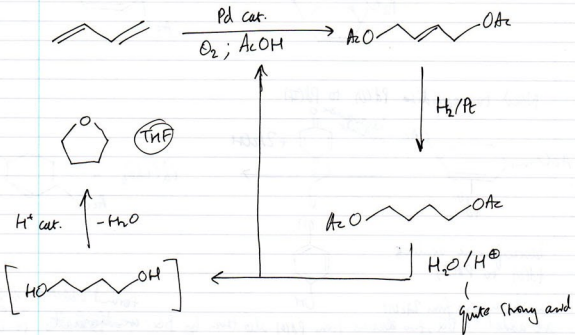 Pd cat.
O2 ; AcOH
AcO
OAc
H2/Pt
O
THF
H+ cat.
-H2O
AcO
OAc
H2O/H⊕
HO
OH
quite strong acid